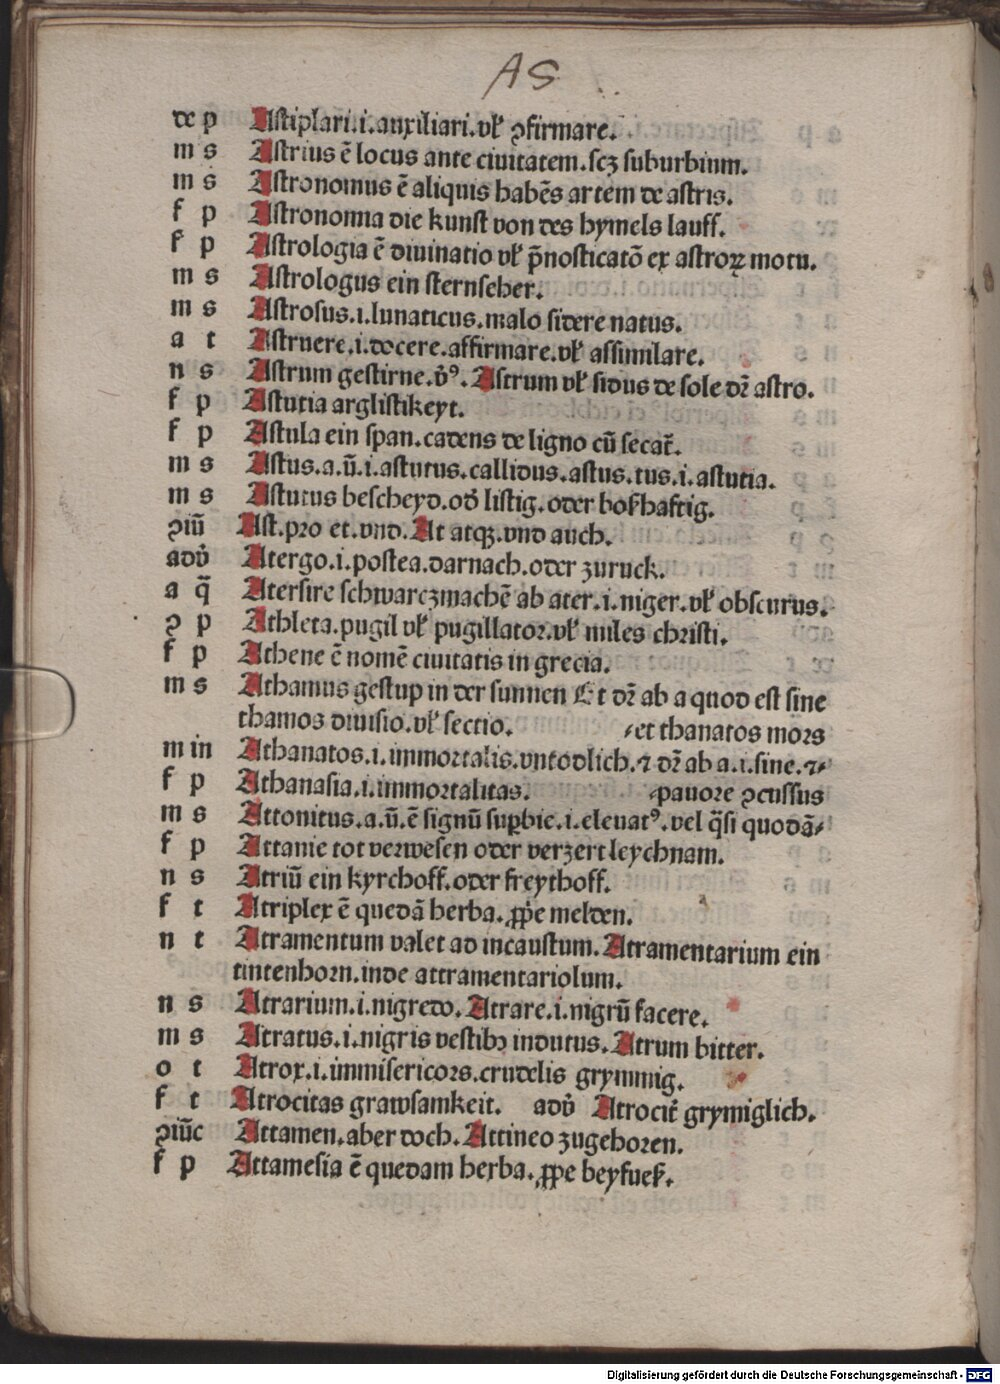 AS
de p Astiplari.i.auxiliari.vl̕ ꝯfirmare.
m s Astrius ē locus ante ciuitatem.scꝫ suburbium.
m s Astronomus ē aliquis habēs artem de astris.
f p Astronomia die kunst von des hymels lauff.
f p Astrologia ē diuinatio vl̕ p̄nosticatō ex astroꝝ motu.
m s Astrologus ein sternseher.
m s Astrosus.i.lunaticus.malo sidere natus.
a t Astruere.i.docere.affirmare.vl̕ assimilare.
n s Astrum gestirne.v̓ꝰ. Astrum vl̕ sidus de sole dr̄ astro.
f p Astutia arglistikeyt.
f p Astula ein span.cadens de ligno cū secat̄.
m s Astus.a.ū.i.astutus.callidus.astus.tus.i.astutia.
m s Astutus bescheyd.od̓ listig.oder boßhaftig.
ꝯiū Ast.pro et.vnd.At atqꝫ.vnd auch.
adv̓ Atergo.i.postea.darnach.oder zuruck.
a q̄ Atersire schwarczmachē ab ater.i.niger.vl̕ obscurus.
ꝯ p Athleta.pugil vl̕ pugillator.vl̕ miles christi.
f p Athene ē nomē ciuitatis in grecia.
m s Athamus gestup in der sunnen Et dr̄ ab a quod est sine
thamos diuisio.vl̕ sectio. et thanatos mors
m in Athanatos.i.immortalis.vntodlich.⁊ dr̄ ab a.i.sine.⁊
f p Athanasia.i.immortalitas. pauore ꝑcussus
m s Attonitus.a.ū.ē signū suꝑbie.i.eleuatꝰ.vel q̄si quodā
f p Attanie tot verwesen oder verzert leychnam.
n s Atriū ein kyrchoff.oder freythoff.
f t Atriplex ē quedā herba.ꝓpe melden.
n t Atramentum valet ad incaustum.Atramentarium ein
tintenhorn.inde attramentariolum.
n s Atrarium.i.nigredo.Atrare.i.nigrū facere.
m s Atratus.i.nigris vestibꝫ indutus.Atrum bitter.
o t Atrox.i.immisericors.crudelis grymmig.
f t Atrocitas grawsamkeit. adv̓ Atrocit̓ grymiglich.
ꝯiūc Attamen.aber doch.Attineo zugehoren.
f p Attamesia ē quedam herba.ꝓpe beyfueß.
Digitalisierung gefördert durch die Deutsche Forschungsgemeinschaft - DFG